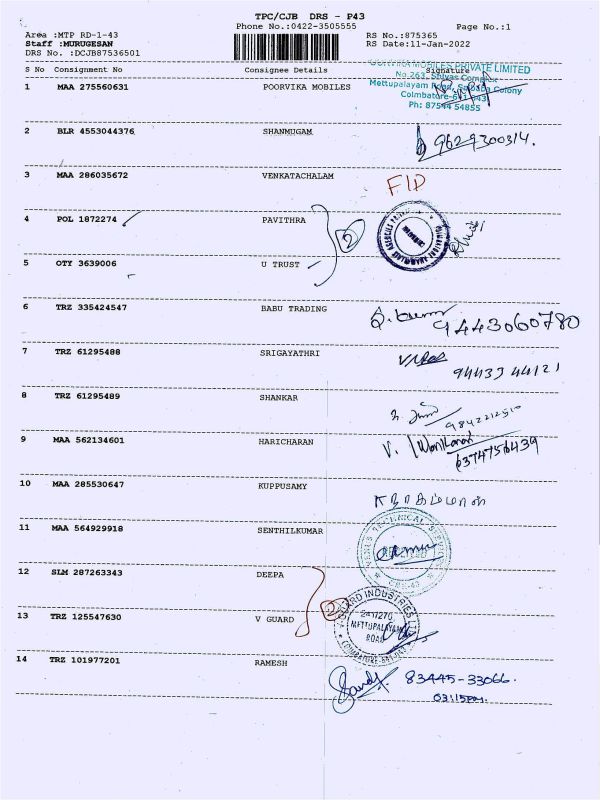 TPC/CJB DRS - P43
Phone No.:0422-3505555 Page No.:1
Area :MTP RD-1-43 RS No.:875365
Staff :MURUGESAN RS Date:11-Jan-2022
DRS No. :DCJB87536501
S No Consignment No Consignee Details Signature
1 MAA 275560631 POORVIKA MOBILES
POORVIKA MOBILES PRIVATE LIMITED
No.263, Shivas Complex
Mettupalayam Road, Saibaba Colony
Coimbatore-641 043
Ph: 87544 54855
2 BLR 4553044376 SHANMUGAM 9629300314.
3 MAA 286035672 VENKATACHALAM
4 POL 1872274 PAVITHRA 2
5 OTY 3639006 U TRUST
6 TRZ 335424547 BABU TRADING 9443060780
7 TRZ 61295488 SRIGAYATHRI
94439 44121
8 TRZ 61295489 SHANKAR 9842212510
9 MAA 562134601 HARICHARAN V.
6374756439
10 MAA 285530647 KUPPUSAMY
11 MAA 564929918 SENTHILKUMAR TECHNICAL
12 SLM 287263343 DEEPA 2
13 TRZ 125547630 V GUARD
V GUARD INDUSTRIES LTD
2411270
METTUPALAYAM
ROAD
COIMBATORE
14 TRZ 101977201 RAMESH 83445-33066.
03:15PM.